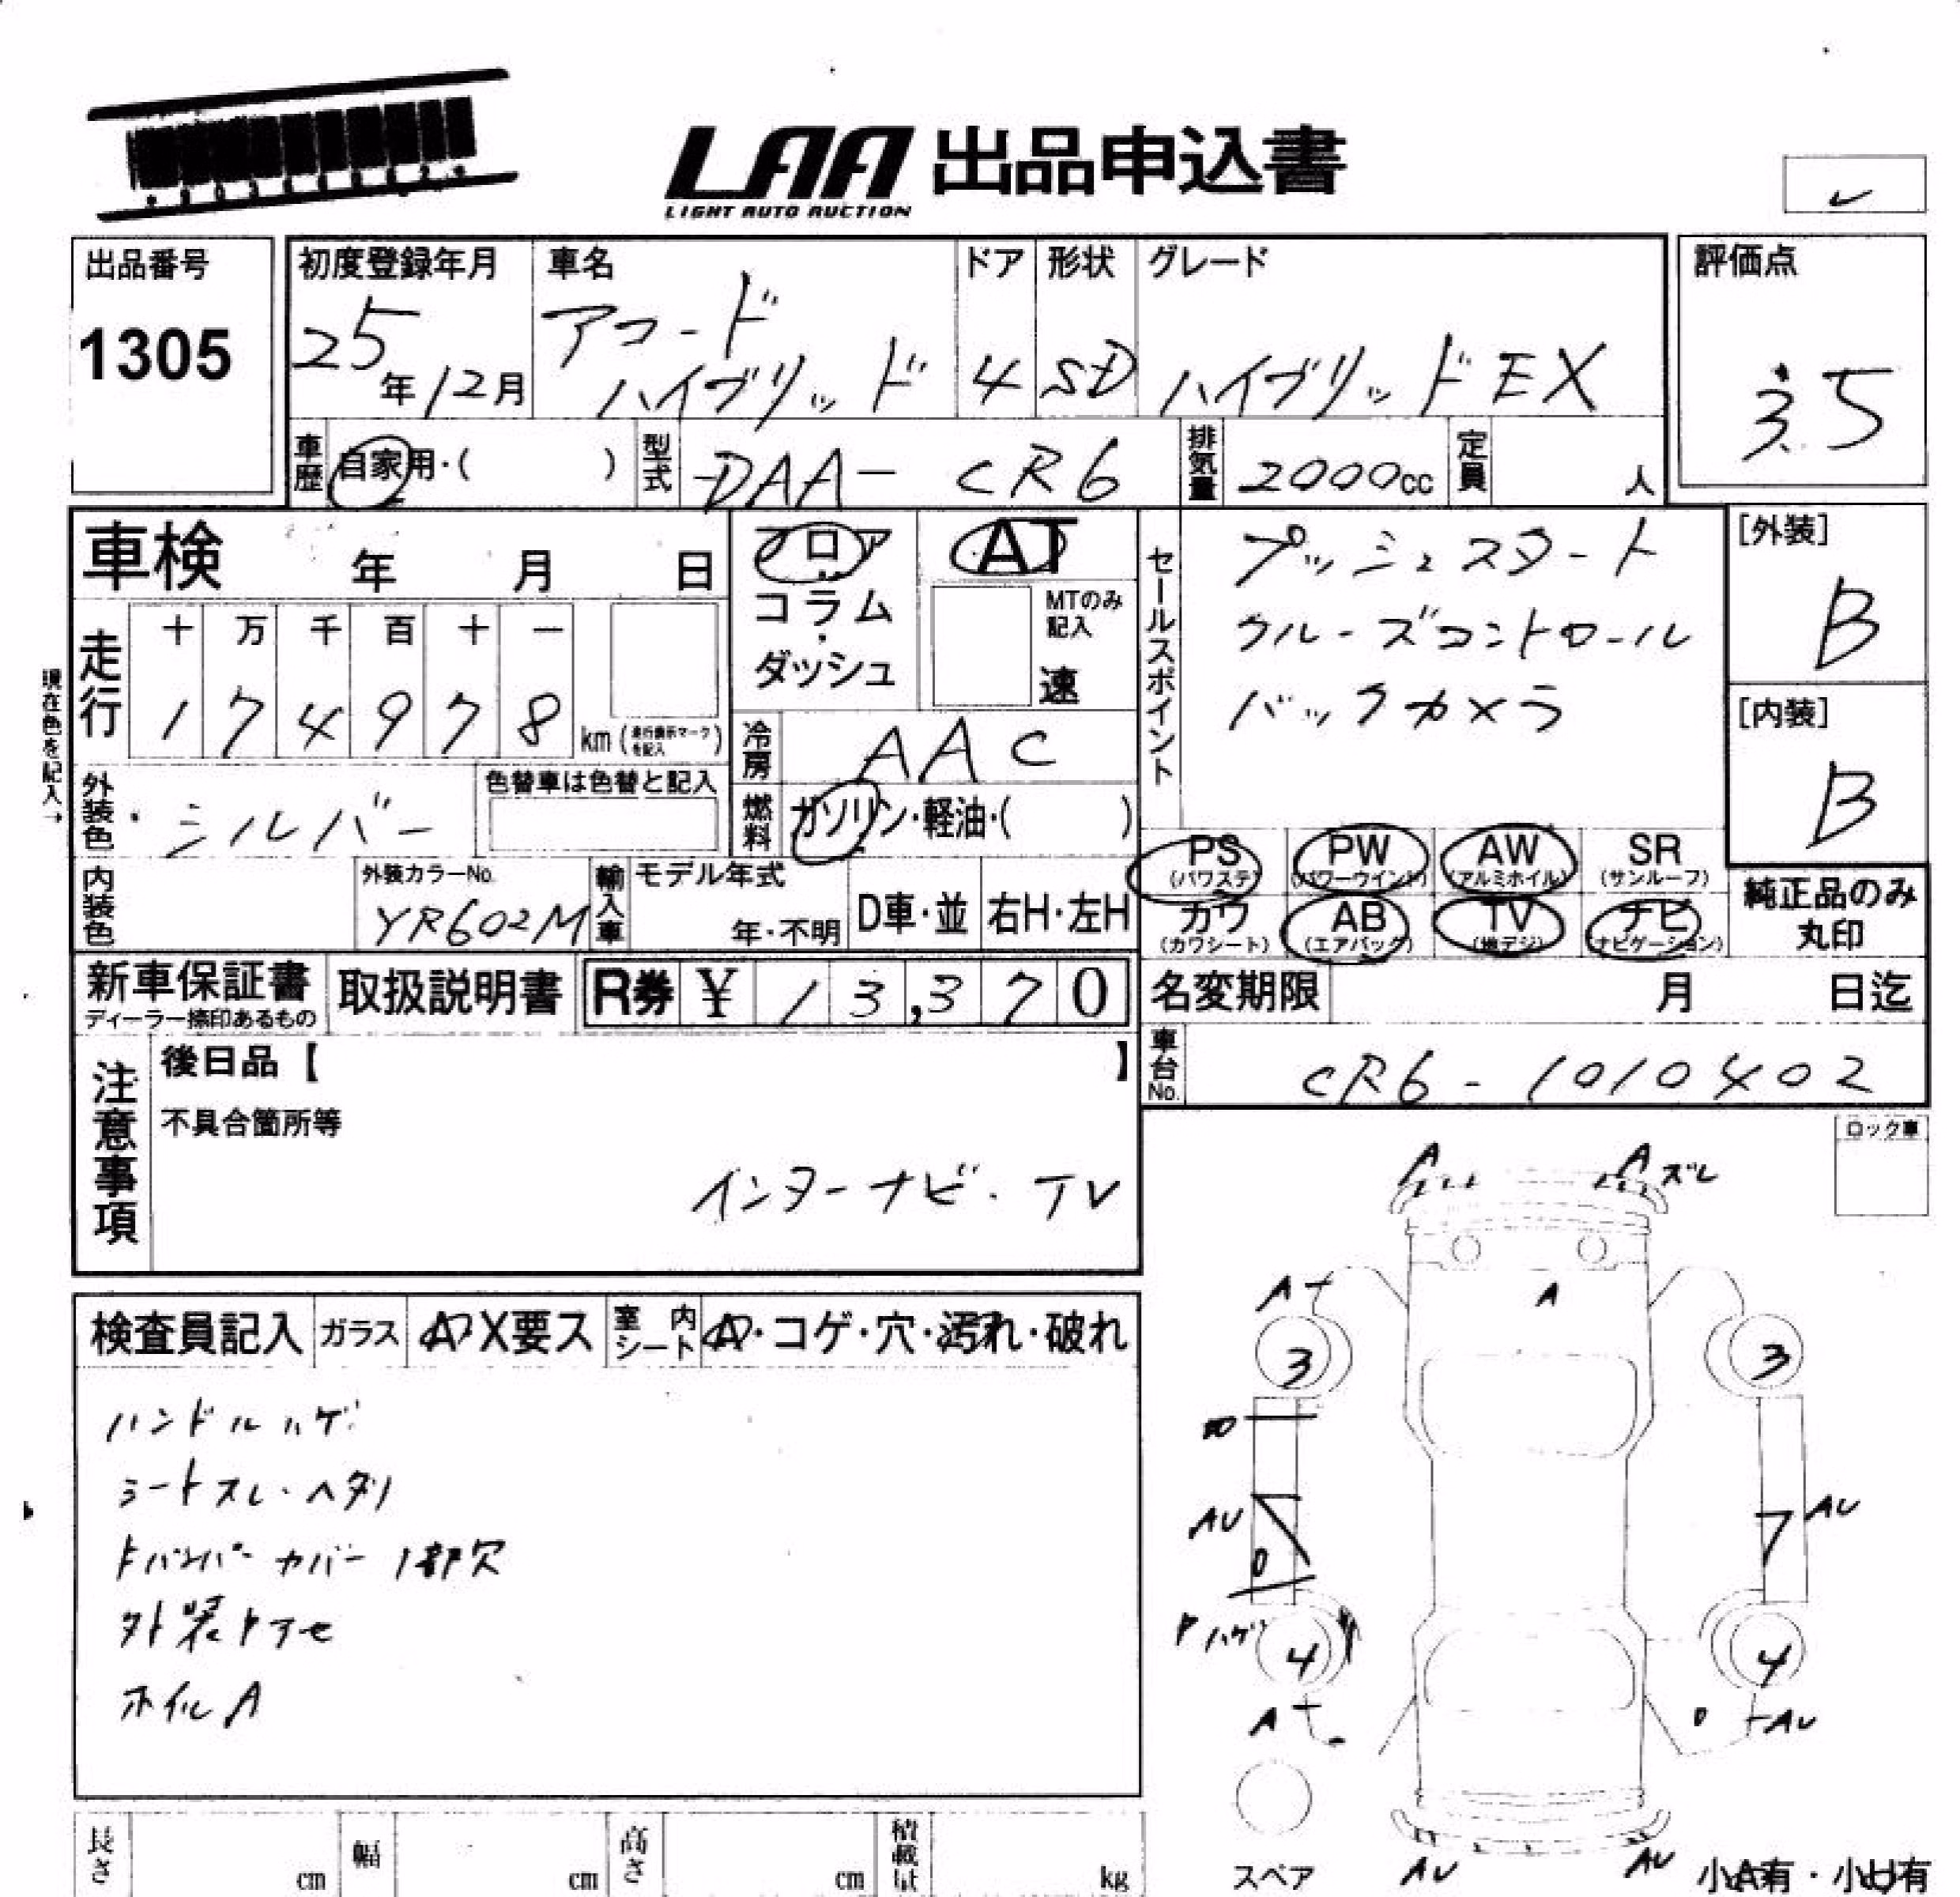 LAA 出品申込書
LIGHT AUTO AUCTION
出品番号
1305
初度登録年月
25年12月
車名
アコード
ハイブリッド
ドア
4
形状
SD
グレード
ハイブリッドEX
評価点
3.5
車歴
自家用・( )
型式
DAA-CR6
排気量
2000cc
定員
人
車検 年 月 日
フロア
コラム
・
ダッシュ
AT
MTのみ
記入
速
セールスポイント
プッシュスタート
クルーズコントロール
バックカメラ
[外装]
B
[内装]
B
現在色を記入→
走行
十 万 千 百 十 一
1 7 4 9 7 8
km (走行表示マークを記入)
冷房
AAC
外装色
シルバー
色替車は色替と記入
燃料
ガソリン・軽油・( )
PS PW AW SR
(パワステ) (パワーウインド) (アルミホイル) (サンルーフ)
カワ AB TV ナビ
(カワシート) (エアバック) (地デジ) (ナビゲーション)
純正品のみ
丸印
内装色
外装カラーNo.
YR602M
輸入車
モデル年式
年・不明
D車・並
右H・左H
新車保証書
ディーラー捺印あるもの
取扱説明書
R券 ¥ 13,370
名変期限 月 日迄
車台No.
CR6-1010402
注意事項
後日品【 】
不具合箇所等
インターナビ・TV
ロック車
A A ズレ
A A
3 3
AU AU
ハゲ
4 4
A AU
スペア
AU AU
小A有・小U有
検査員記入
ガラス
A・X要ス
室内シート
A・コゲ・穴・汚れ・破れ
ハンドルハゲ
シートスレ・ヘタリ
Fバンパーカバー1部欠
外装トアセ
ホイルA
長さ cm
幅 cm
高さ cm
積載量 kg